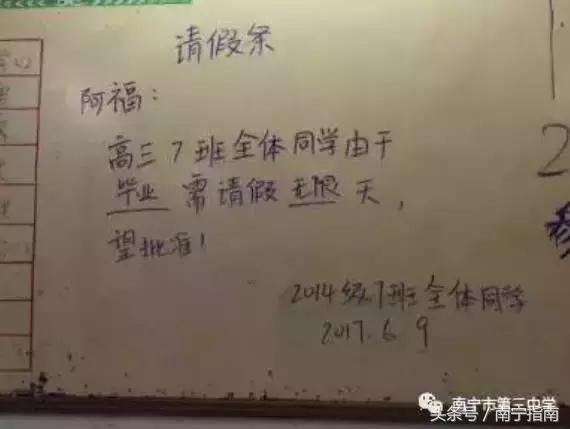 请假条
阿福：
高三7班全体同学由于
毕业 需请假 无限 天，
望批准！
2014级7班全体同学
2017.6.9
2
南宁市第三中学
头条号／南宁指南